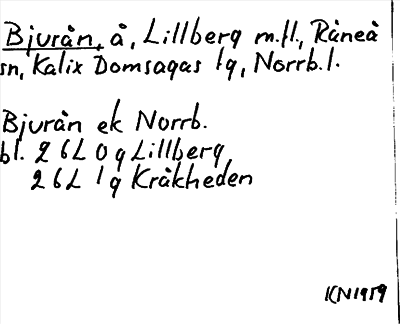 Bjurån, å, Lillberg m.fl., Råneå
sn, Kalix Domsagas lg, Norrb.l.
Bjurån ek Norrb.
bl. 26L 0g Lillberg,
26L 1g Kråkheden
KN1959